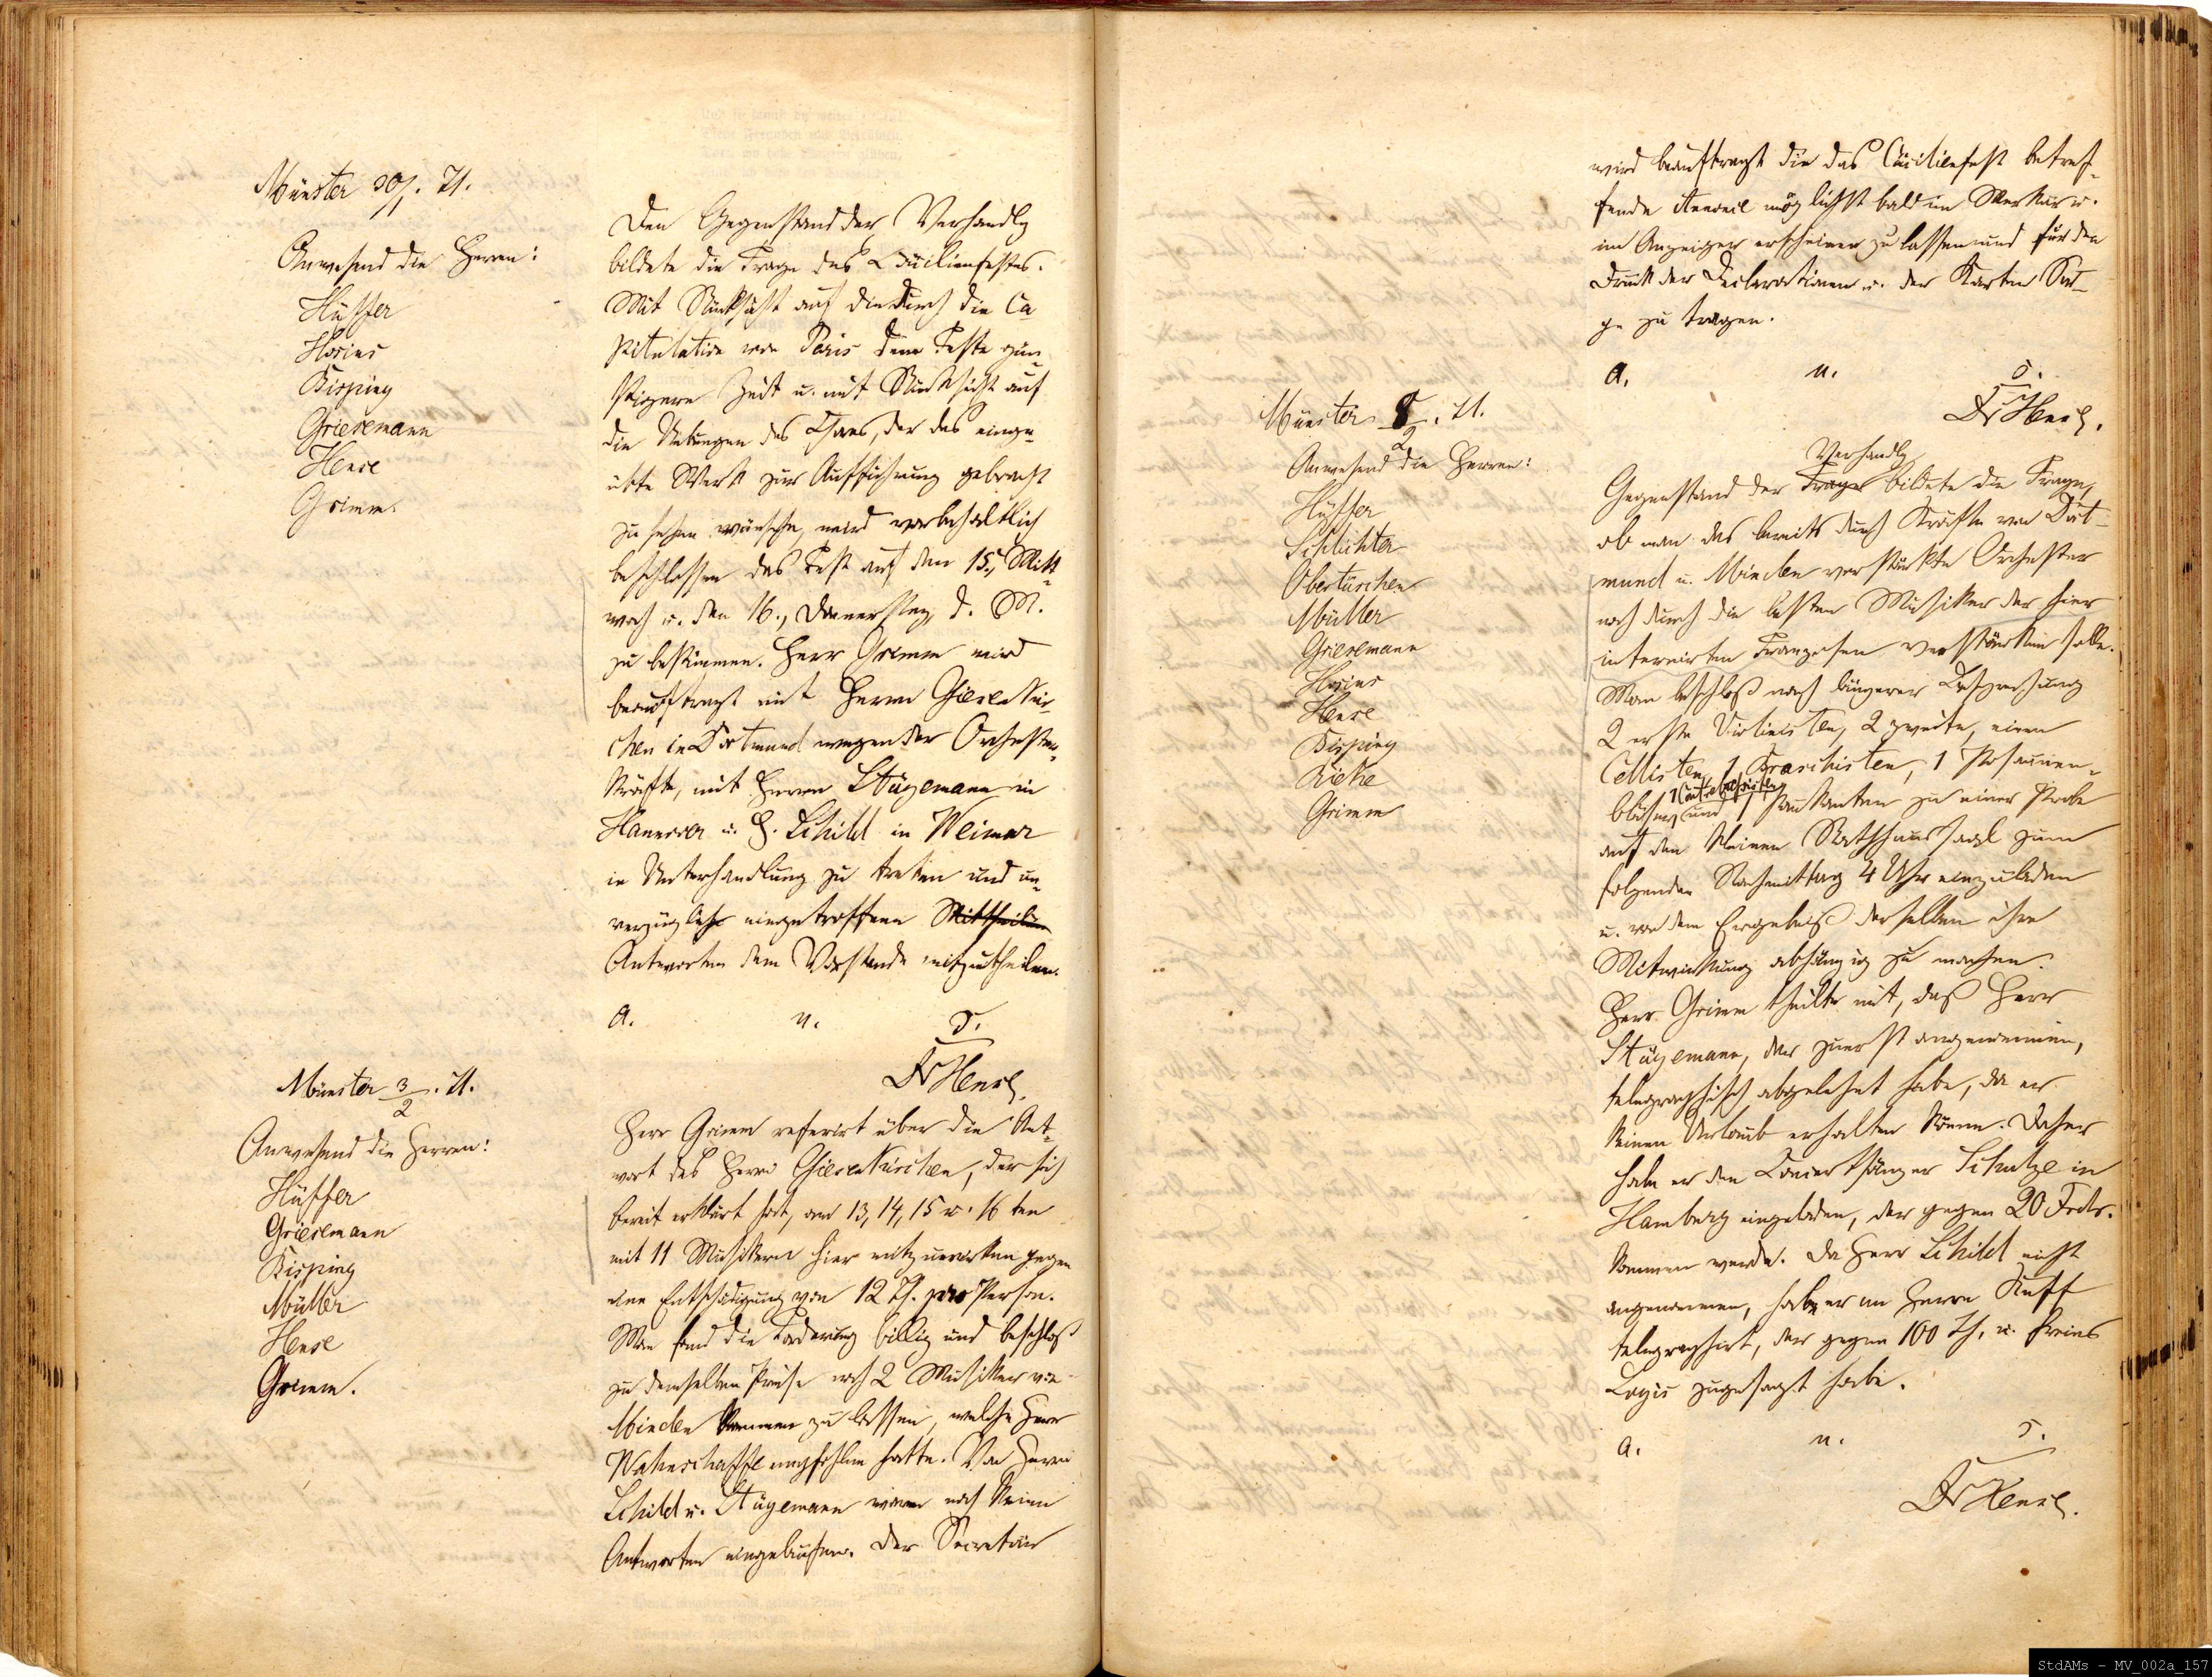 Münster 30/1. 71.
Anwesend die Herren:
Hüffer
Hosius
Bisping
Griesemann
Hense
Grimm.
Den Gegenstand der Verhandlg
bildete die Frage des Cäcilienfestes.
Mit Rücksicht auf die durch die Ca-
pitulation von Paris dem Feste gün-
stigere Zeit u. mit Rücksicht auf
die Uebungen des Chors, der das einge-
übte Werk zur Aufführung gebracht
zu sehen wünsche, wird vorbehaltlich
beschlossen das Fest auf den 15., Mitt-
woch u. den 16., Donnerstag, d. M.
zu bestimmen. Herr Grimm wird
beauftragt mit Herrn Giesenkir-
chen in Dortmund wegen der Orchester-
kräfte, mit Herrn Stägemann in
Hannover u. H. Schild in Weimar
in Unterhandlung zu treten und un-
verzüglich eingetroffene Mittheilun
Antworten dem Vorstande mitzutheilen.
a. u. s.
Dr Hense.
Münster 3/2. 71.
Anwesend die Herren:
Hüffer
Griesemann
Bisping
Müller
Hense
Grimm.
Herr Grimm referirt über die Ant-
wort des Herrn Giesenkirchen, der sich
bereit erklärt hat, am 13, 14, 15 u. 16 ten
mit 11 Musikern hier mitzuwirken gegen
eine Entschädigung von 12 Th. pro Person.
Man fand die Forderung billig und beschloß
zu demselben Preise noch 2 Musiker von
Minden kommen zu lassen, welche Herr
Wahnschaffe empfohlen hatte. Von Herrn
Schild u. Stägemann waren noch keine
Antworten eingelaufen. Der Secretär
wird beauftragt die das Cäcilienfest betref-
fende Annonce möglichst bald im Merkur u.
im Anzeiger erscheinen zu lassen und für den
Druck der Declarationen u. der Karten Sor-
ge zu tragen.
a. u. s.
Dr Hense.
Münster 8/2. 71.
Anwesend die Herren:
Hüffer
Schlichter
Obertüschen
Müller
Griesemann
Hosius
Hense
Bisping
Grimm
Verhandlg
Gegenstand der Frage bildete die Frage,
ob man das bereits durch Kräfte von Dort-
mund u. Minden verstärkte Orchester
noch durch die besten Musiker der hier
internirten Franzosen verstärken solle.
Man beschloß nach längerer Besprechung
2 erste Violinisten, 2 zweite, einen
Cellisten, 1 Braschisten, 1 Posaunen-
1 Contrabassisten
bläser und 1 Paukanten zu einer Probe
auf den kleinen Rathhaussaal zum
folgenden Nachmittag 4 Uhr einzuladen
u. von dem Ergebniß derselben ihre
Mitwirkung abhängig zu machen.
Herr Grimm theilte mit, daß Herr
Stägemann, der zuerst angenommen,
telegraphisch abgelehnt habe, da er
keinen Urlaub erhalten könne. Daher
habe er den Concertsänger Schulze in
Hamburg eingeladen, der gegen 20 Frdr.
kommen werde. Da Herr Schild nicht
angenommen, habe er an Herrn Ruff
telegraphirt, der gegen 100 Th. u. freies
Logis zugesagt habe.
a. u. s.
Dr Hense.
StdAMs - MV_002a_157